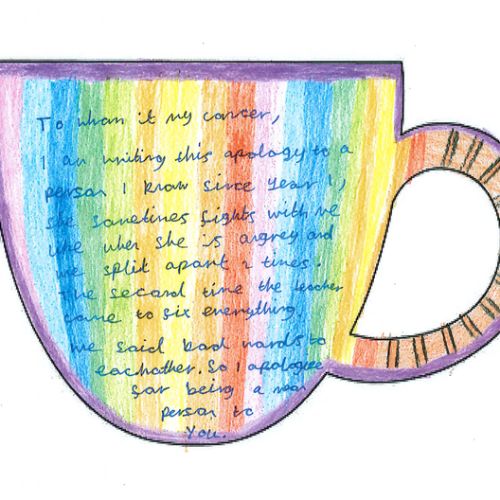 To whom it my cancer,
I am writing this apology to a
person I know since year 1,
she sometimes fights with me
like when she is angrey and
we split apart 2 times.
The second time the teacher
came to six everything,
We said bad words to
eachather. So I apologise
for being a mean
person to
you.